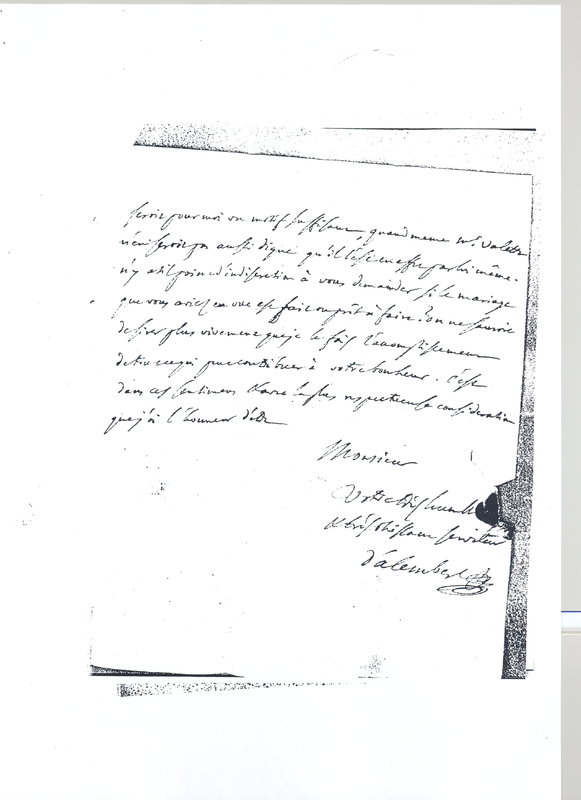 seroit pour moi un motif suffisant, quand meme Mr. Valette
n'en seroit pas aussi digne qu'il l'est en effet par lui même.
n'y a til point d'indiscretion à vous demander si le mariage
que vous aviez en vue est fait ou prêt à faire? on ne sauroit
desirer plus vivement que je le fais l'accomplissement
de tout ce qui peut contribuer à votre bonheur. C'est
dans ces sentimens et avec la plus respectueuse consideration
que j'ai l'honneur d'etre
Monsieur
Votre très humble
et très obeissant serviteur
d'alembert